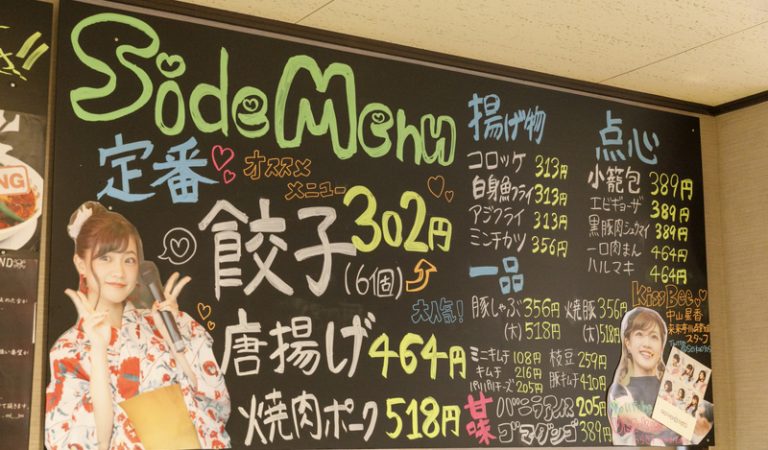 Side Menu
定番
オススメ
メニュー
餃子 302円
(6個)
大人気!
唐揚げ 464円
焼肉ポーク 518円
揚げ物
コロッケ 313円
白身魚フライ 313円
アジフライ 313円
ミンチカツ 356円
一品
豚しゃぶ 356円 焼豚 356円
(大) 518円 (大) 518円
ミニキムチ 108円 枝豆 259円
キムチ 216円 豚キムチ 410円
パリパリチーズ 205円
甘味
バニラアイス 205円
ゴマダンゴ 389円
点心
小籠包 389円
エビギョーザ 389円
黒豚肉シュウマイ 389円
一口肉まん 464円
ハルマキ 464円
KissBee
中山星香
スタッフ
NG
ND